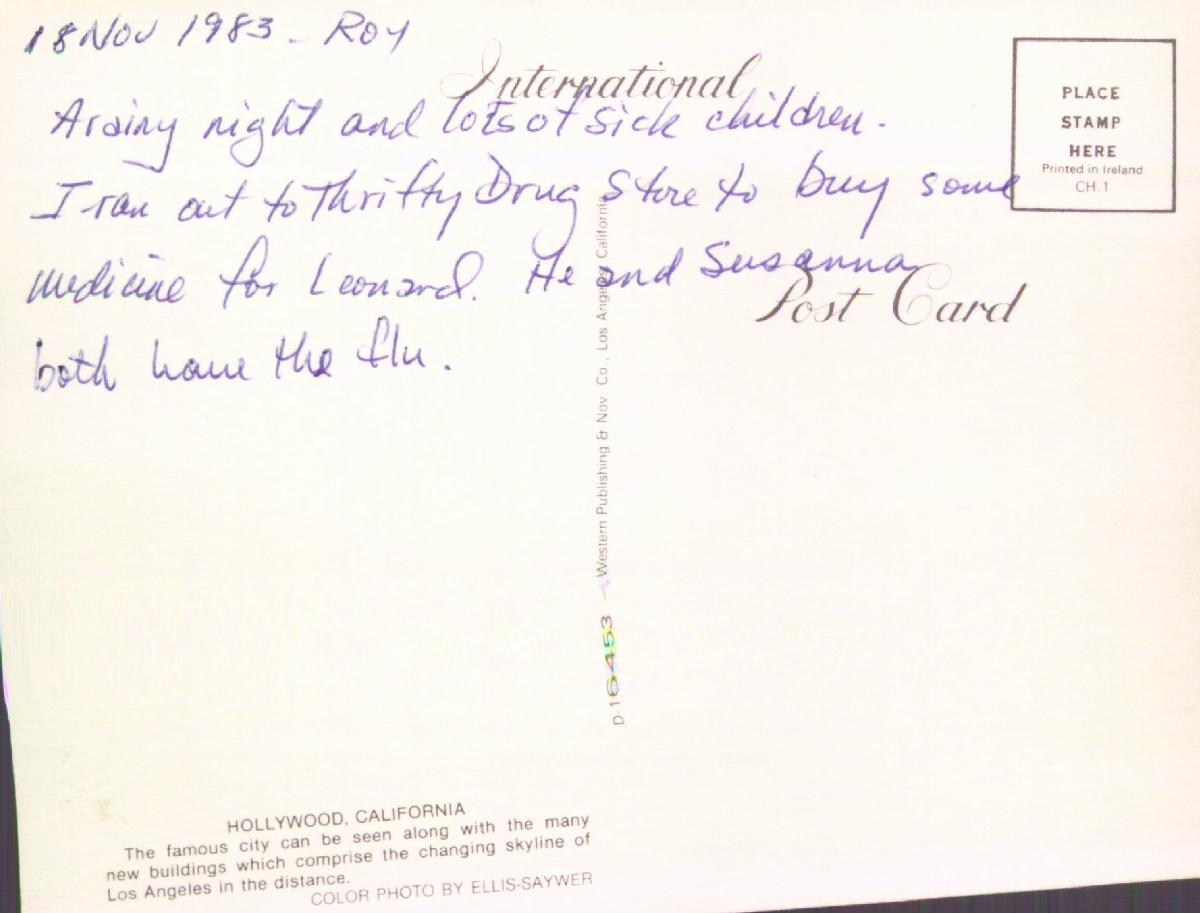 18 Nov 1983 - Roy
International
A rainy night and lots of sick children.
I ran out to Thrifty Drug Store to buy some
medicine for Leonard. He and Susanna
both have the flu.
PLACE
STAMP
HERE
Printed in Ireland
CH.1
Post Card
D-16453 - Western Publishing & Nov. Co., Los Angeles, California
HOLLYWOOD, CALIFORNIA
The famous city can be seen along with the many
new buildings which comprise the changing skyline of
Los Angeles in the distance.
COLOR PHOTO BY ELLIS-SAYWER